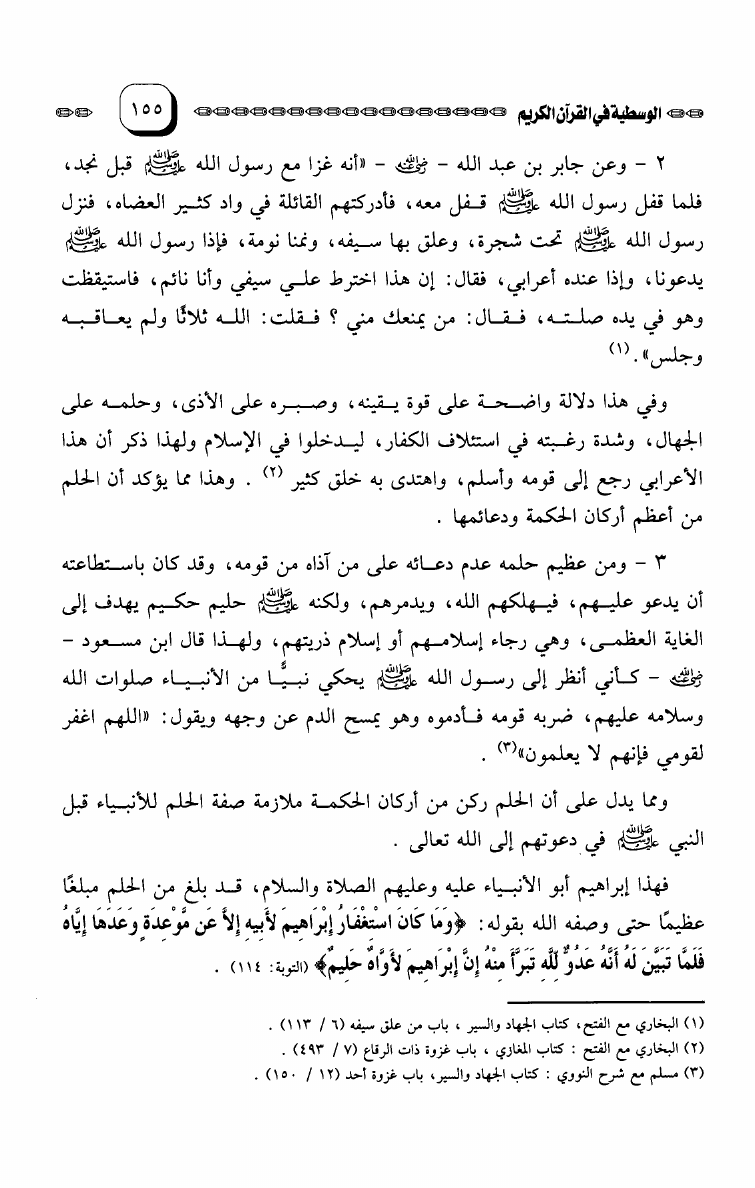 الوسطية في القرآن الكريم ١٥٥
٢ - وعن جابر بن عبد الله - رضي الله عنه - «أنه غزا مع رسول الله ﷺ قبل نجد،
فلما قفل رسول الله ﷺ قفل معه، فأدركتهم القائلة في واد كثير العضاه، فنزل
رسول الله ﷺ تحت شجرة، وعلق بها سيفه، ونمنا نومة، فإذا رسول الله ﷺ
يدعونا، وإذا عنده أعرابي، فقال: إن هذا اخترط علي سيفي وأنا نائم، فاستيقظت
وهو في يده صلتـه، فقال: من يمنعك مني ؟ فقلت: الله ثلاثًا ولم يعاقبه
وجلس».(١)
وفي هذا دلالة واضحة على قوة يقينه، وصبره على الأذى، وحلمه على
الجهال، وشدة رغبته في استئلاف الكفار، ليدخلوا في الإسلام ولهذا ذكر أن هذا
الأعرابي رجع إلى قومه وأسلم، واهتدى به خلق كثير (٢) . وهذا مما يؤكد أن الحلم
من أعظم أركان الحكمة ودعائمها .
٣ - ومن عظيم حلمه عدم دعائه على من آذاه من قومه، وقد كان باستطاعته
أن يدعو عليهم، فيهلكهم الله، ويدمرهم، ولكنه ﷺ حليم حكيم يهدف إلى
الغاية العظمى، وهي رجاء إسلامهم أو إسلام ذريتهم، ولهذا قال ابن مسعود -
رضي الله عنه - كأني أنظر إلى رسول الله ﷺ يحكي نبيًّا من الأنبياء صلوات الله
وسلامه عليهم، ضربه قومه فأدموه وهو يمسح الدم عن وجهه ويقول: «اللهم اغفر
لقومي فإنهم لا يعلمون»(٣) .
ومما يدل على أن الحلم ركن من أركان الحكمة ملازمة صفة الحلم للأنبياء قبل
النبي ﷺ في دعوتهم إلى الله تعالى .
فهذا إبراهيم أبو الأنبياء عليه وعليهم الصلاة والسلام، قد بلغ من الحلم مبلغًا
عظيمًا حتى وصفه الله بقوله: ﴿وَمَا كَانَ اسْتِغْفَارُ إِبْرَاهِيمَ لأَبِيهِ إِلاَّ عَن مَّوْعِدَةٍ وَعَدَهَا إِيَّاهُ
فَلَمَّا تَبَيَّنَ لَهُ أَنَّهُ عَدُوٌّ لِلَّهِ تَبَرَّأَ مِنْهُ إِنَّ إِبْرَاهِيمَ لأَوَّاهٌ حَلِيمٌ﴾ (التوبة: ١١٤) .
(١) البخاري مع الفتح، كتاب الجهاد والسير ، باب من علق سيفه (٦ / ١١٣) .
(٢) البخاري مع الفتح : كتاب المغازي ، باب غزوة ذات الرقاع (٧ / ٤٩٣) .
(٣) مسلم مع شرح النووي : كتاب الجهاد والسير، باب غزوة أحد (١٢ / ١٥٠) .